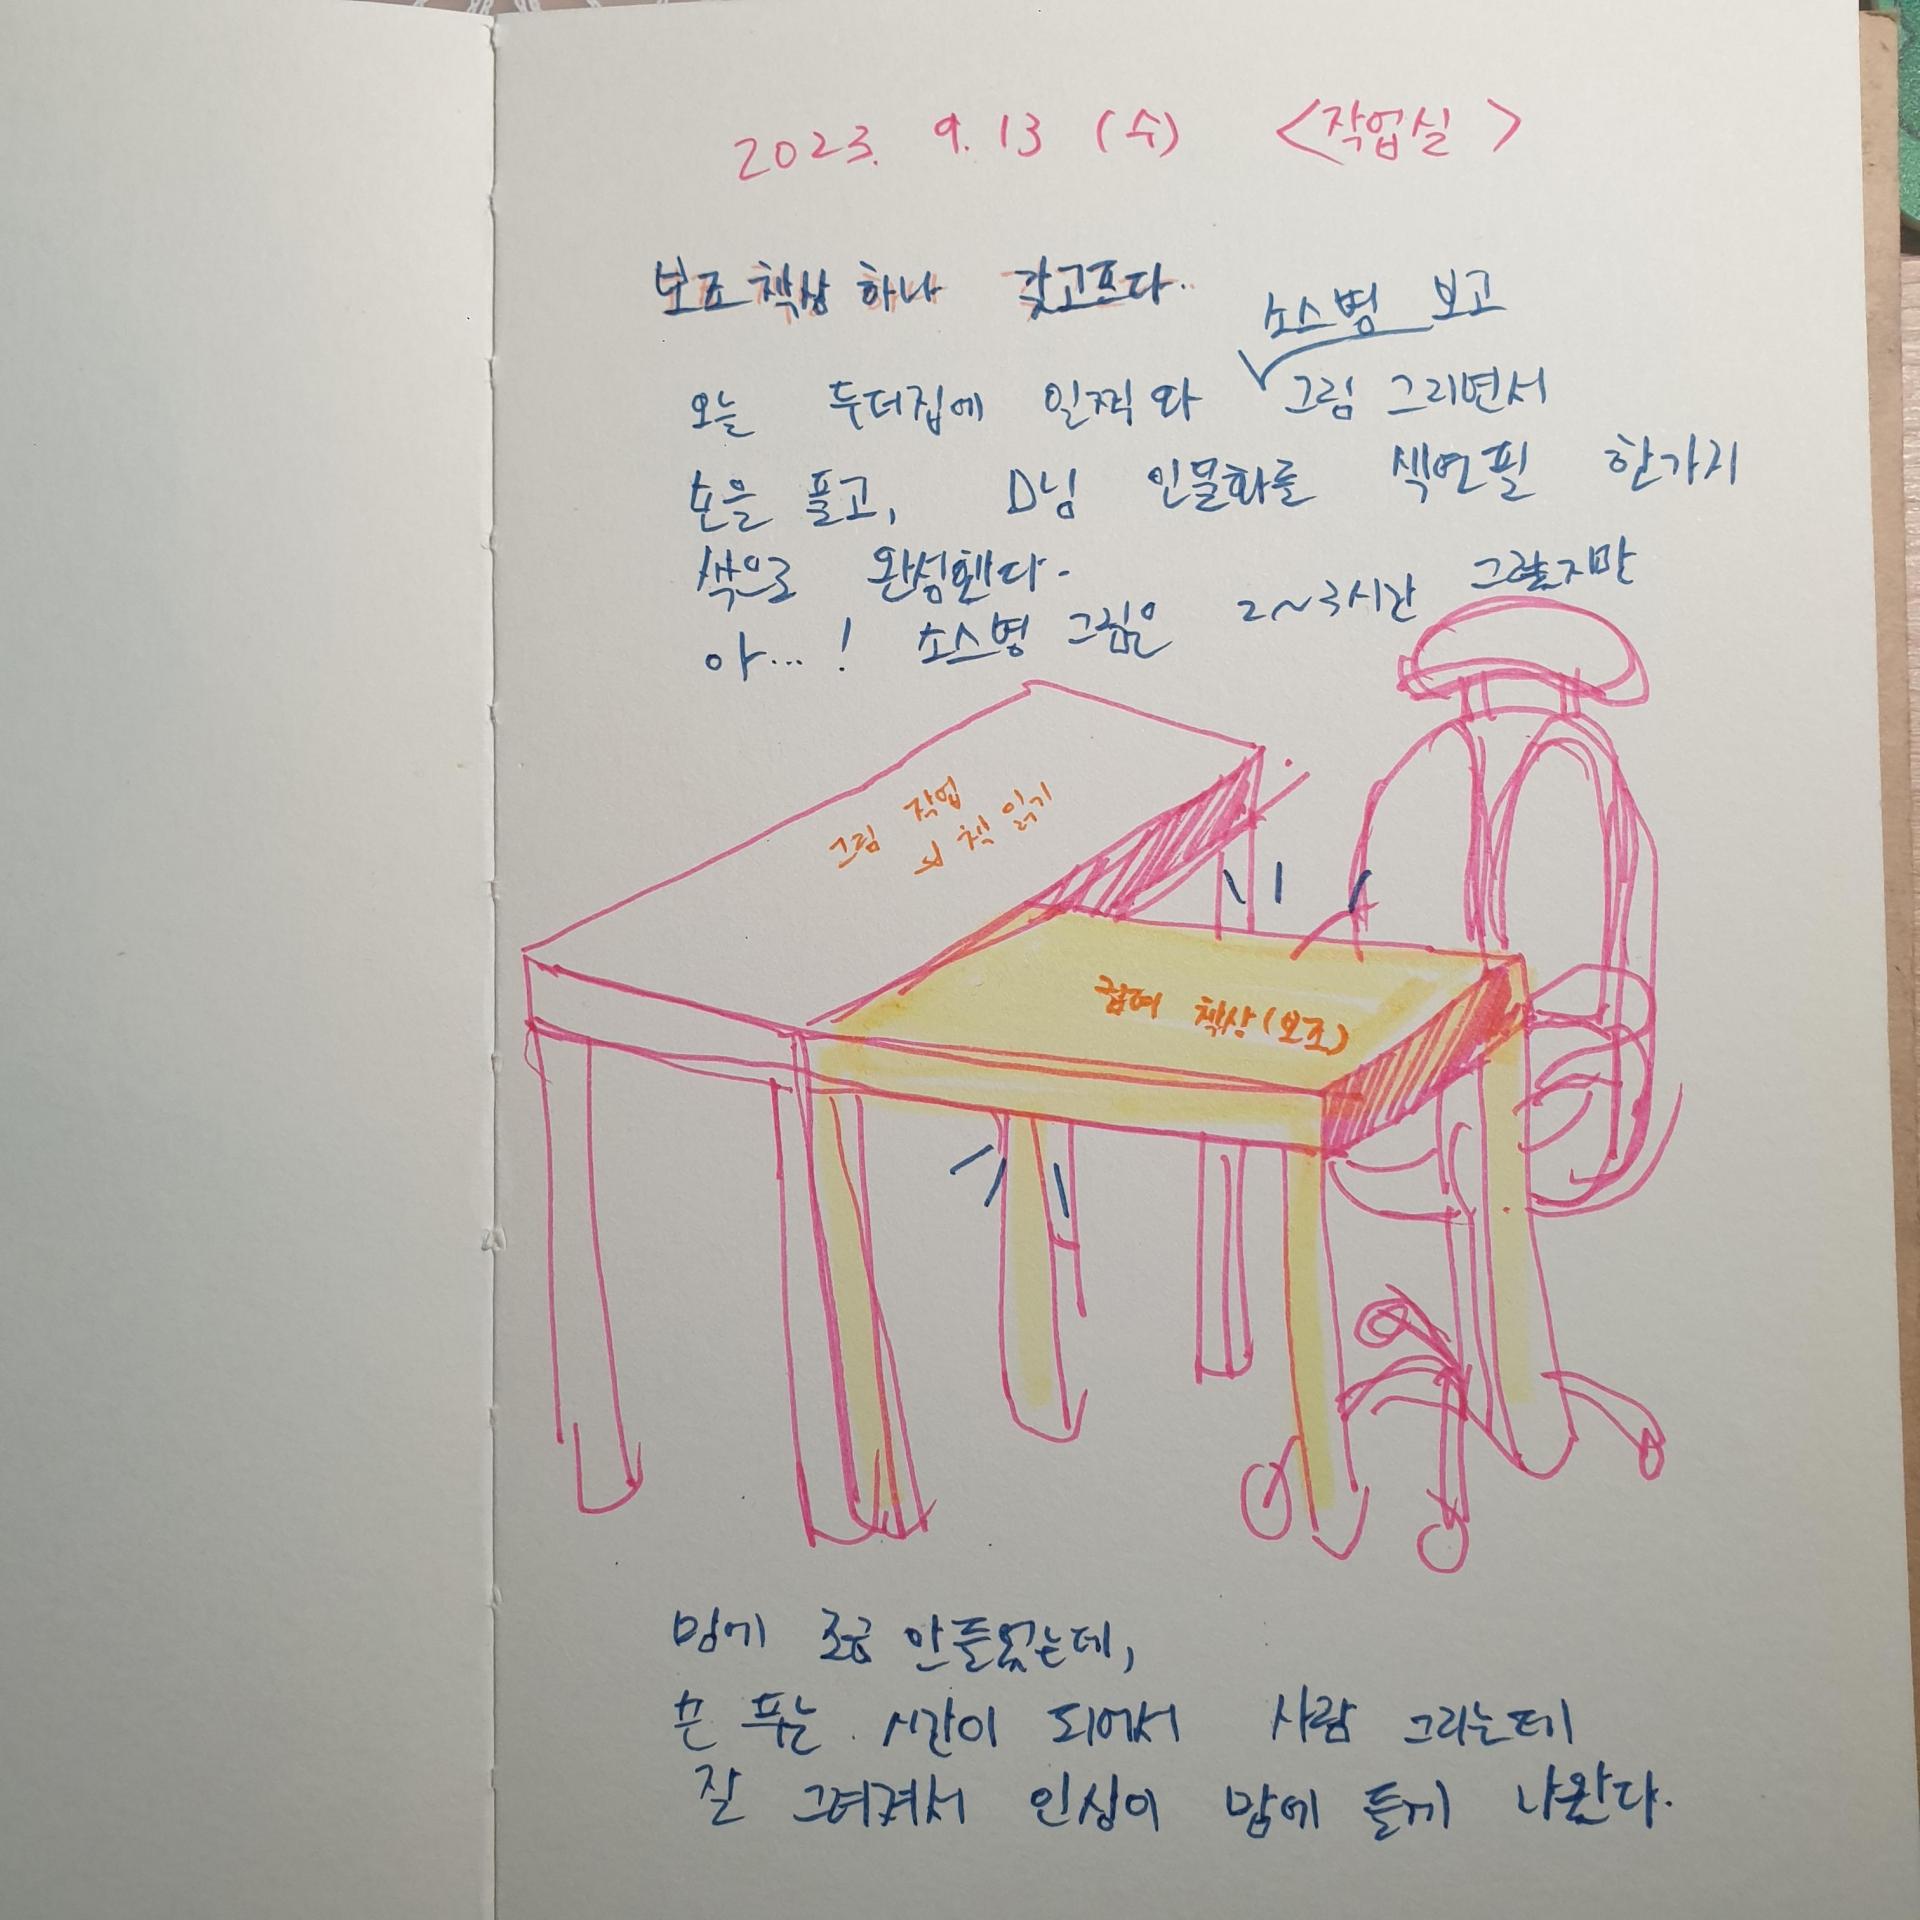 2023. 9. 13 (수) <작업실>
보조 책상 하나 갖고프다..
소스병 보고
오늘 두더집에 일찍 와 그림 그리면서
손을 풀고, D님 인물화를 색연필 한가지
색으로 완성했다.
아...! 소스병 그림은 2~3시간 그렸지만
그림 작업
및 책 읽기
컴퓨터 책상(보조)
맘에 조금 안 들었는데,
손 푸는 시간이 되어서 사람 그리는데
잘 그려져서 인상이 맘에 들게 나왔다.